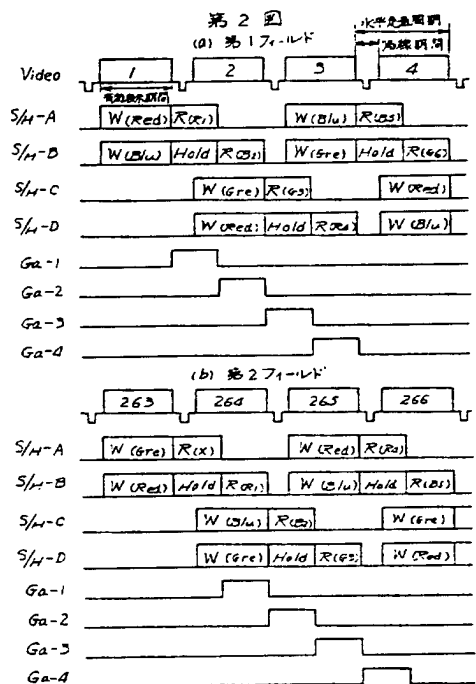 第2図
(a) 第1フィールド
水平走査周期
帰線期間
Video 1 2 3 4
有効表示期間
S/H-A W(Red) R(R1) W(Blu) R(B5)
S/H-B W(Blu) Hold R(B2) W(Gre) Hold R(G6)
S/H-C W(Gre) R(G3) W(Red)
S/H-D W(Red) Hold R(R4) W(Blu)
Ga-1
Ga-2
Ga-3
Ga-4
(b) 第2フィールド
263 264 265 266
S/H-A W(Gre) R(X) W(Red) R(R4)
S/H-B W(Red) Hold R(R1) W(Blu) Hold R(B5)
S/H-C W(Blu) R(B2) W(Gre)
S/H-D W(Gre) Hold R(G3) W(Red)
Ga-1
Ga-2
Ga-3
Ga-4